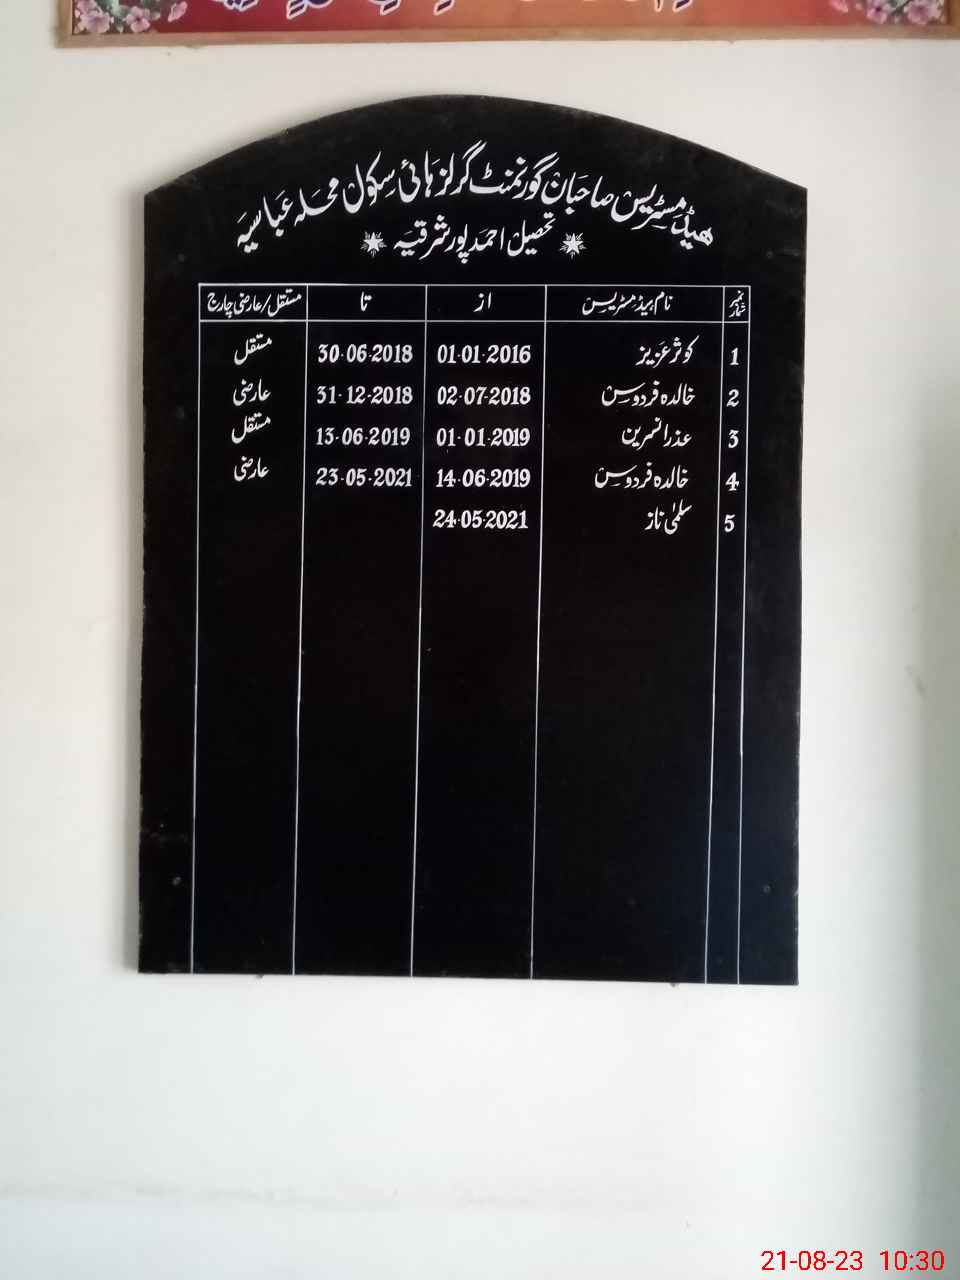 ھیڈمسٹریس صاحبان گورنمنٹ گرلز ہائی سکول محلہ عباسیہ
تحصیل احمد پور شرقیہ
نمبر شمار نام ہیڈمسٹریس از تا مستقل/عارضی چارج
1 کوثر عزیز 01-01-2016 30-06-2018 مستقل
2 خالدہ فردوس 02-07-2018 31-12-2018 عارضی
3 عذرا نسرین 01-01-2019 13-06-2019 مستقل
4 خالدہ فردوس 14-06-2019 23-05-2021 عارضی
5 سلمیٰ ناز 24-05-2021
21-08-23 10:30